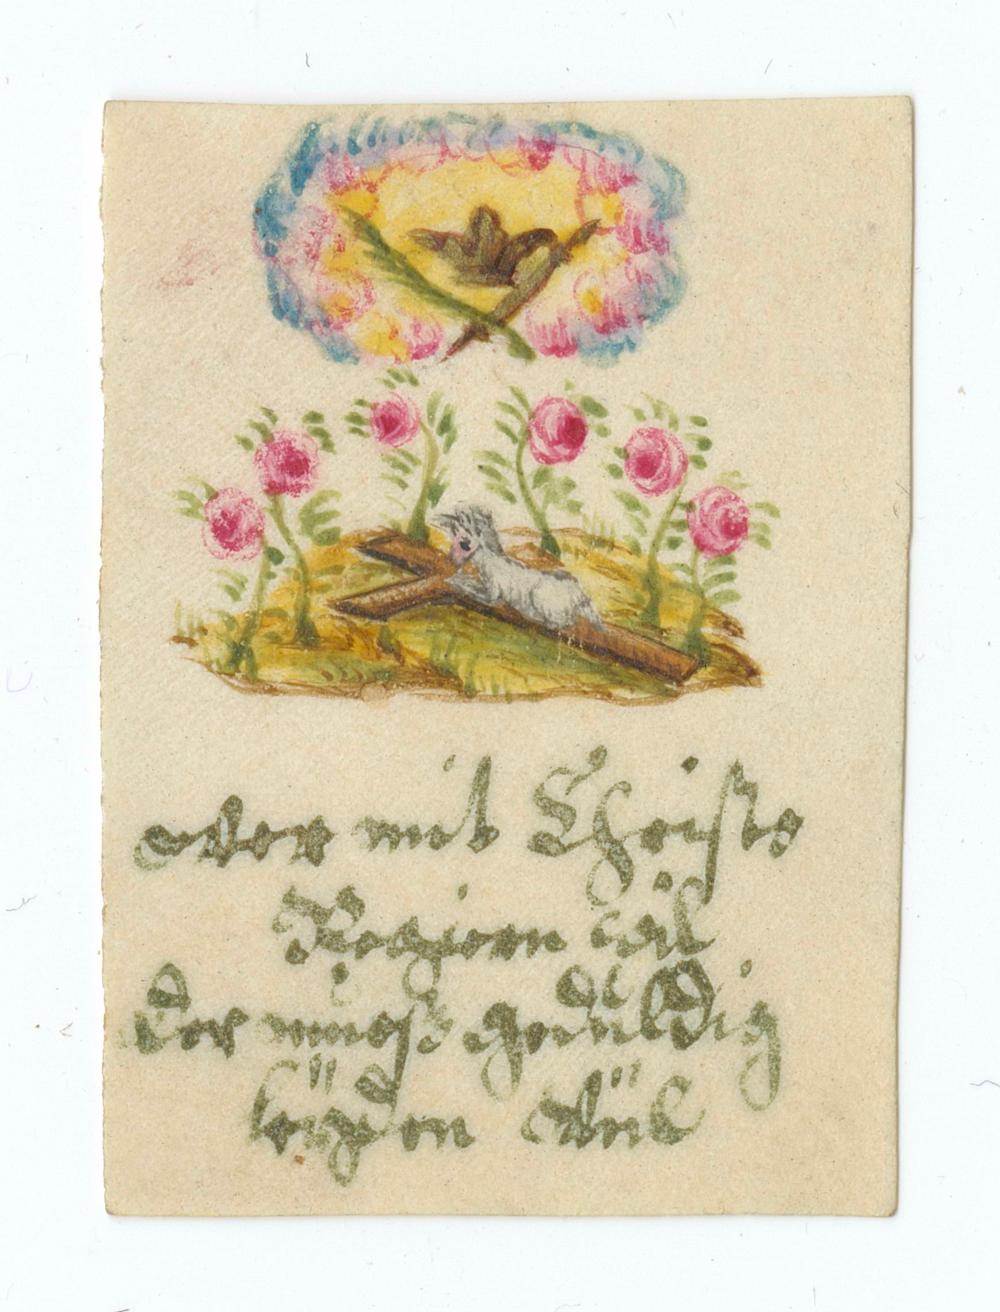 wer mit Christo
Regiern wil
der muoß geduldig
leyden vüil